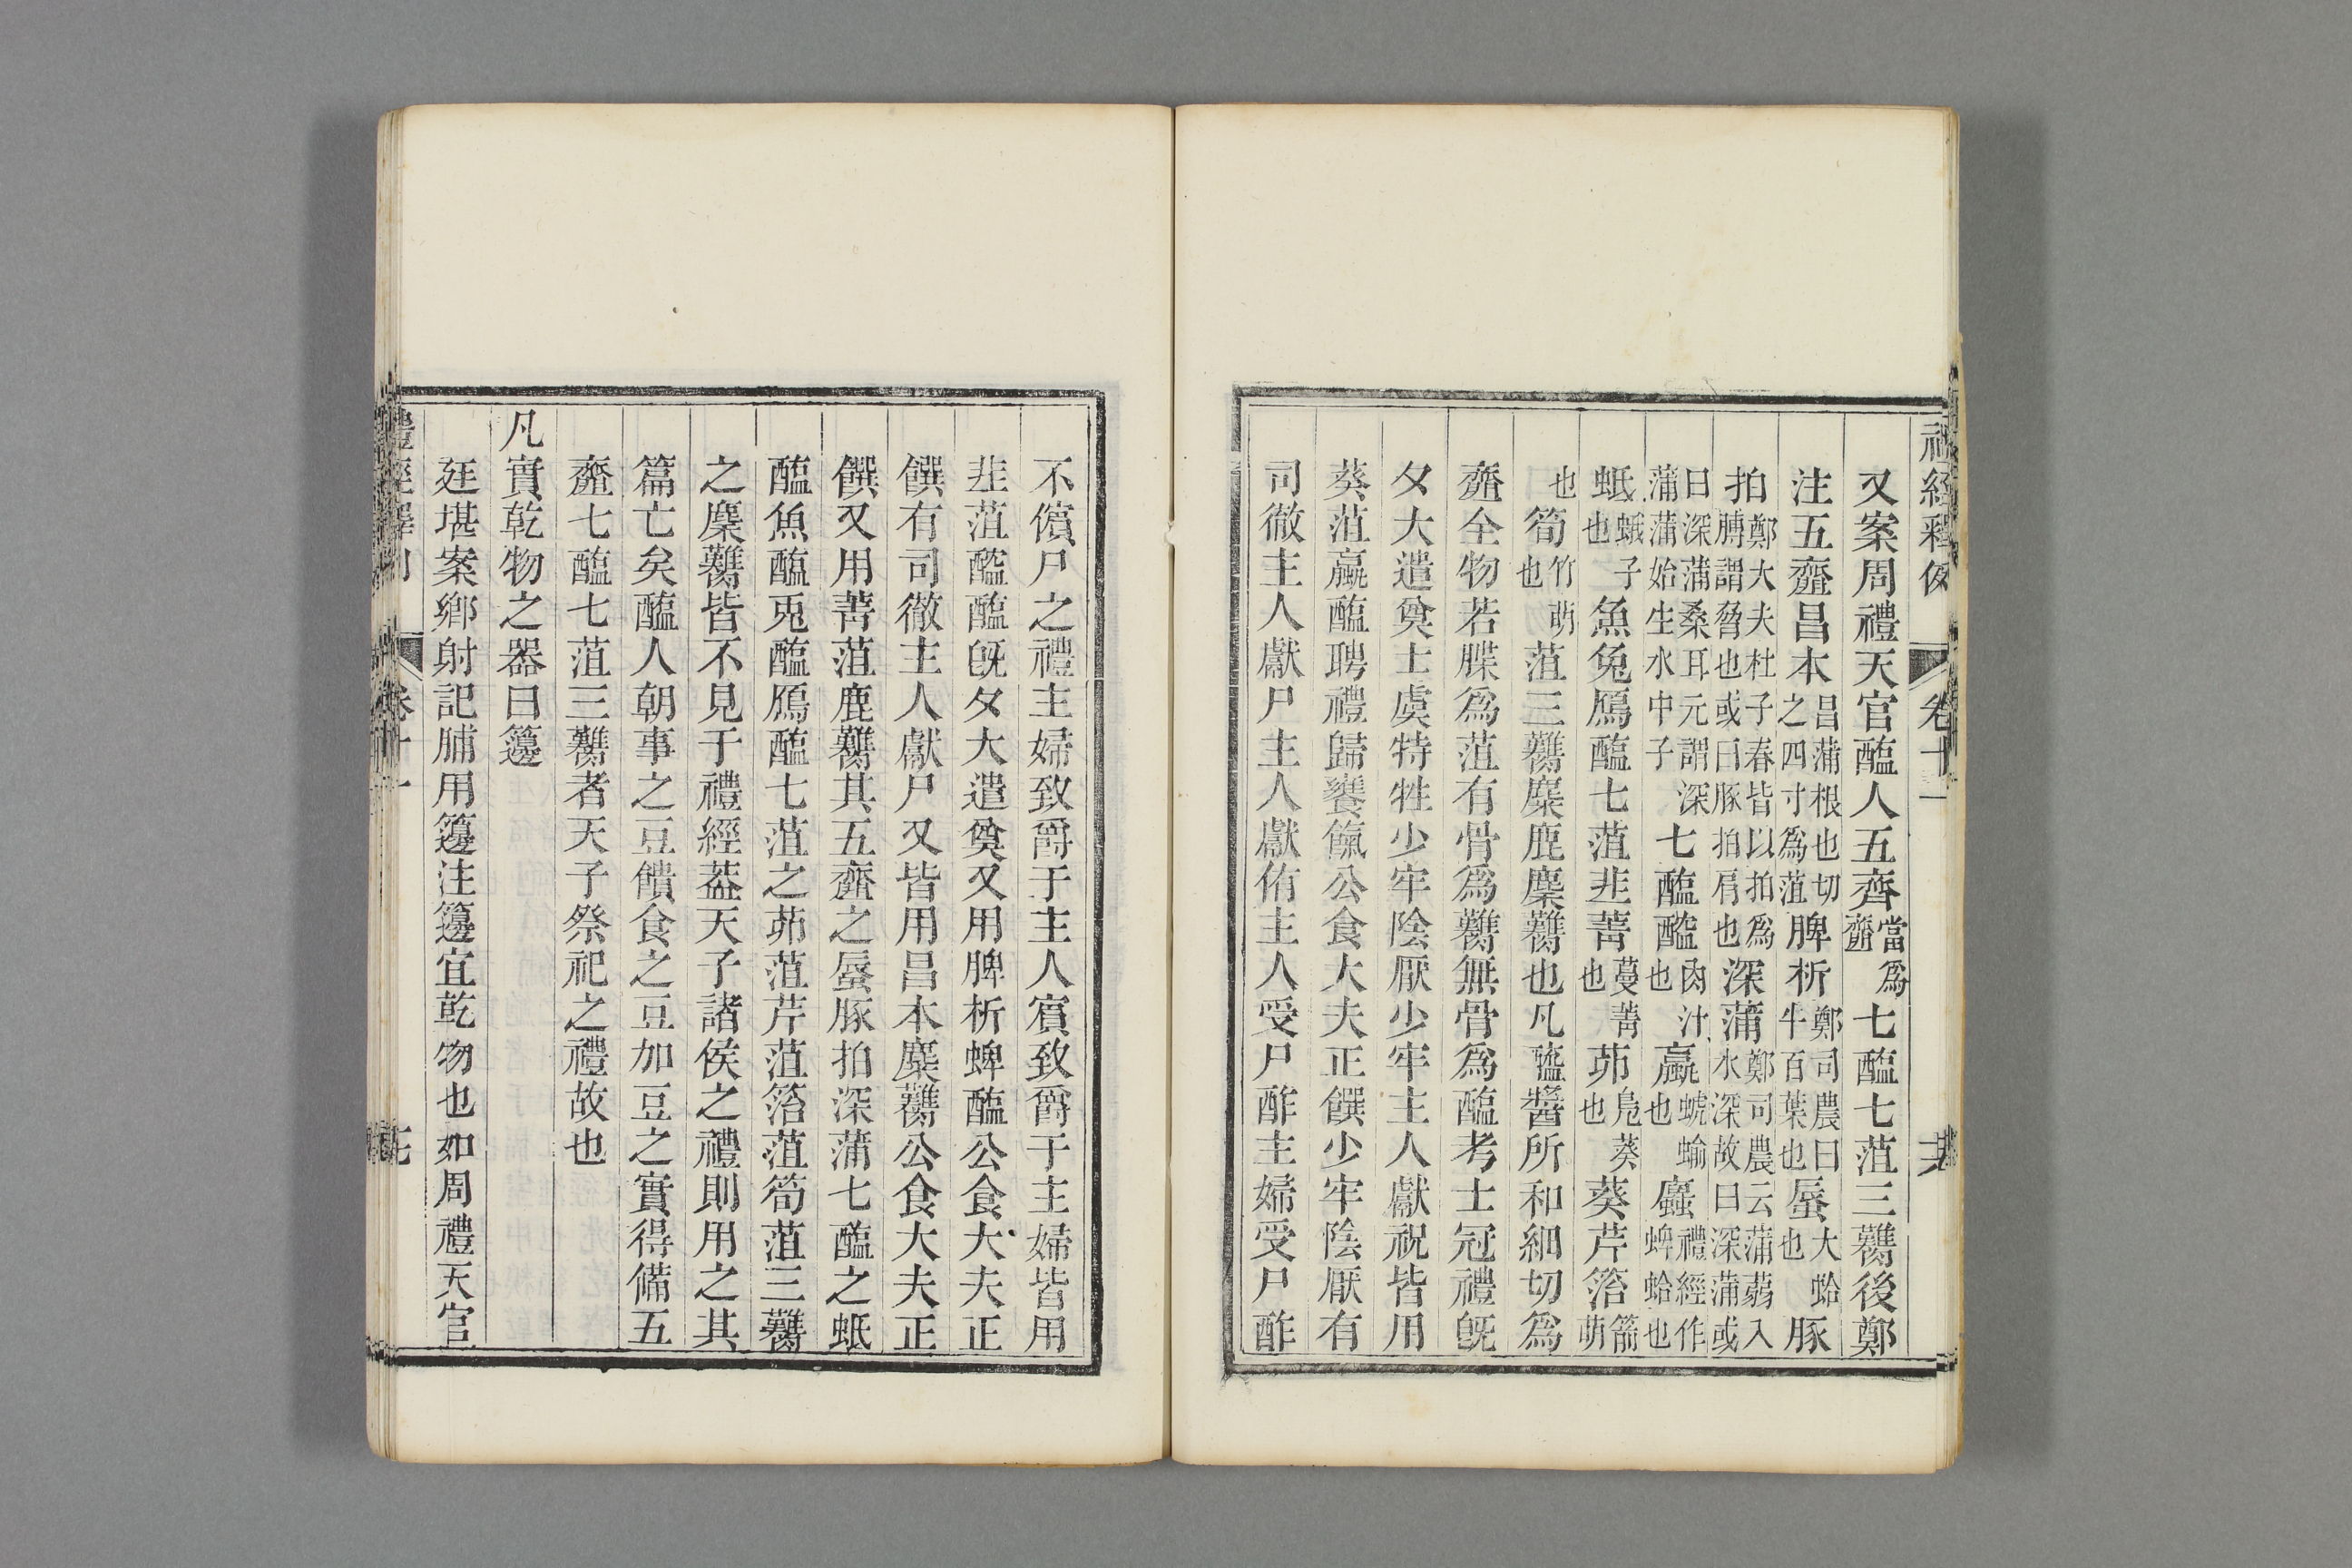 禮經釋例 卷十一
又案周禮天官醢人五齊當爲齏七醢七菹三臡後鄭
注五齏昌本昌蒲根也切之四寸爲菹脾析鄭司農曰牛百葉也蜃大蛤也豚
拍鄭大夫杜子春皆以拍爲膊謂脅也或曰豚拍肩也深蒲鄭司農云蒲蒻入水深故曰深蒲或
曰深蒲桑耳元謂深蒲蒲始生水中子七醢醓肉汁也蠃螔蝓也蠯禮經作蜱蜱蛤也
蚳蛾子也魚兔鴈醢七菹韭菁蔓菁也茆鳧葵也葵芹箈箭萌
也筍竹萌也菹三臡麋鹿麇臡也凡醯醬所和細切爲
齏全物若䐑爲菹有骨爲臡無骨爲醢考士冠禮旣
夕大遣奠士虞特牲少牢陰厭少牢主人獻祝皆用
葵菹蠃醢聘禮歸饔餼公食大夫正饌少牢陰厭有
司徹主人獻尸主人獻侑主人受尸酢主婦受尸酢
不儐尸之禮主婦致爵于主人賓致爵于主婦皆用
韭菹醓醢旣夕大遣奠又用脾析蜱醢公食大夫正
饌有司徹主人獻尸又皆用昌本麋臡公食大夫正
饌又用菁菹鹿臡其五齏之蜃豚拍深蒲七醢之蚳
醢魚醢兎醢鴈醢七菹之茆菹芹菹箈菹筍菹三臡
之麇臡皆不見于禮經葢天子諸侯之禮則用之其
篇亡矣醢人朝事之豆饋食之豆加豆之實得備五
齏七醢七菹三臡者天子祭祀之禮故也
凡實乾物之器曰籩
廷堪案鄉射記脯用籩注籩宜乾物也如周禮天官
禮經釋例 卷十一